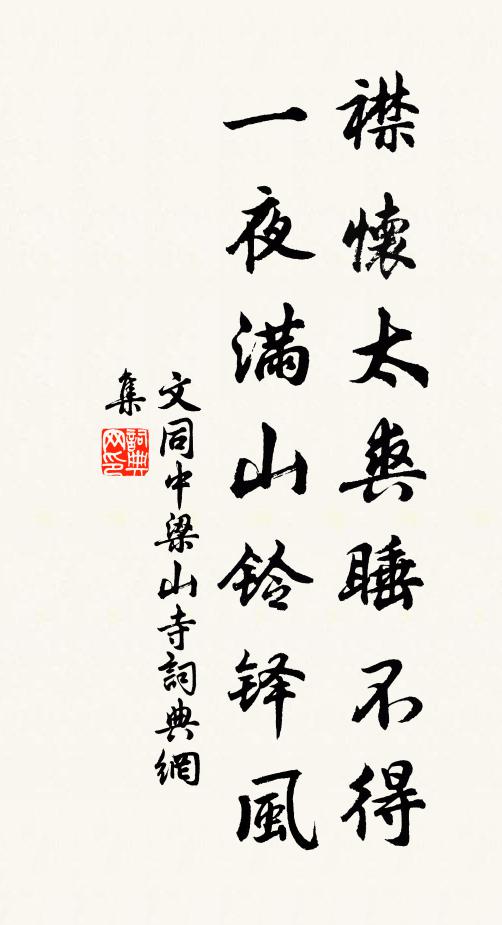 襟懷太爽睡不得
一夜滿山鈴铎風
文同中梁山寺詞典網
集
詞典网印